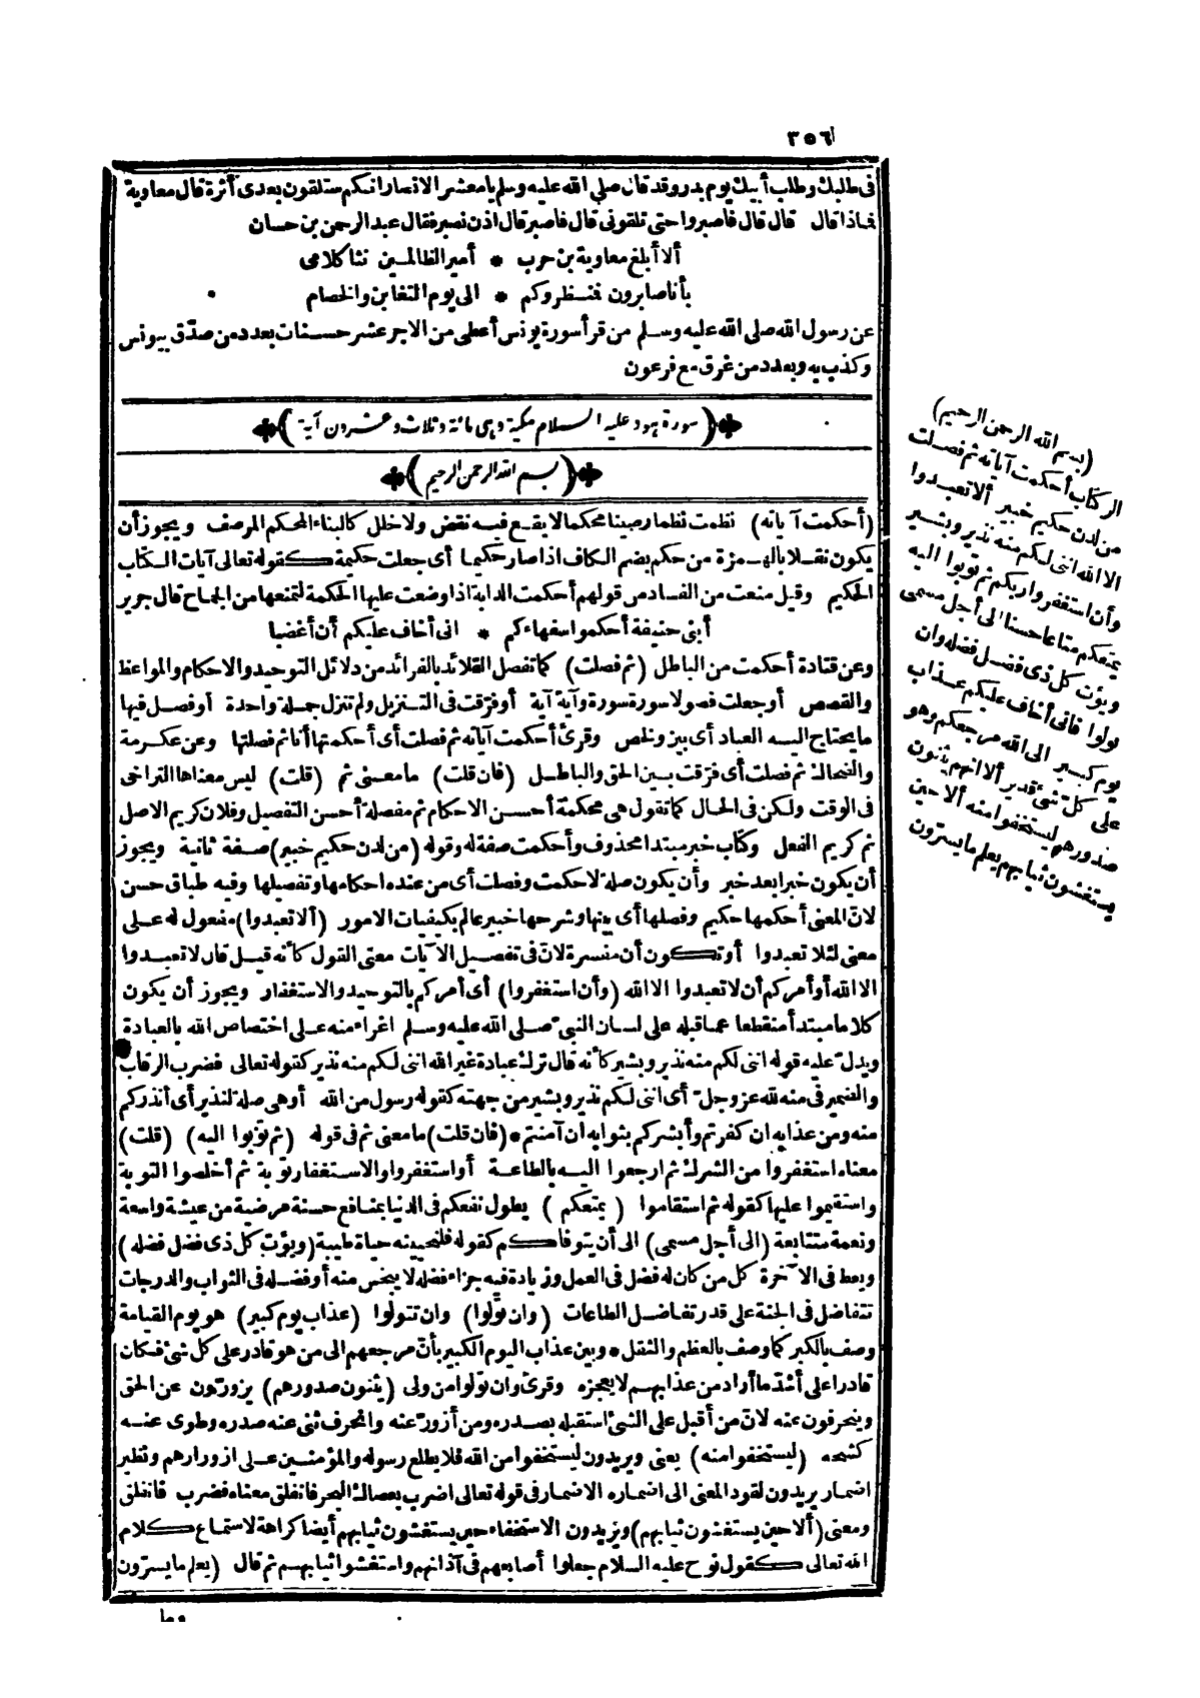 ٣٥٦
فى طلبك وطلب أبيك يوم بدر وقد قال صلى الله عليه وسلم يا معشر الانصار انكم ستلقون بعدى أثرة قال معاوية
فماذا قال قال قال فاصبروا حتى تلقونى قال فاصبر قال اذن نصبر فقال عبد الرحمن بن حسان
ألا أبلغ معاوية بن حرب * أمير الظالمين نثا كلامى
بأنا صابرون فمنظروكم * الى يوم التغابن والخصام
عن رسول الله صلى الله عليه وسلم من قرأ سورة يونس أعطى من الاجر عشر حسنات بعدد من صدّق بيونس
وكذب به وبعدد من غرق مع فرعون
(سورة هود عليه السلام مكية وهى مائة وثلاث وعشرون آية)
(بسم الله الرحمن الرحيم)
(أحكمت آياته) نظمت نظما رصينا محكما لا يقع فيه نقض ولا خلل كالبناء المحكم المرصف ويجوز أن
يكون نقلا بالهمزة من حكم بضم الكاف اذا صار حكيما أى جعلت حكيمة كقوله تعالى آيات الكتاب
الحكيم وقيل منعت من الفساد من قولهم أحكمت الدابة اذا وضعت عليها الحكمة لتمنعها من الجماح قال جرير
أبنى حنيفة أحكموا سفهاءكم * انى أخاف عليكم أن أغضبا
وعن قتادة أحكمت من الباطل (ثم فصلت) كما تفصل القلائد بالفرائد من دلائل التوحيد والاحكام والمواعظ
والقصص أو جعلت فصولا سورة سورة وآية آية أو فرّقت فى التنزيل ولم تنزل جملة واحدة أو فصل فيها
ما يحتاج اليه العباد أى بين ولخص وقرئ أحكمت آياته ثم فصلت أى أحكمتها أنا ثم فصلتها وعن عكرمة
والضحاك ثم فصلت أى فرّقت بين الحق والباطل (فان قلت) ما معنى ثم (قلت) ليس معناها التراخى
فى الوقت ولكن فى الحال كما تقول هى محكمة أحسن الاحكام ثم مفصلة أحسن التفصيل وفلان كريم الاصل
ثم كريم الفعل وكتاب خبر مبتدا محذوف وأحكمت صفة له وقوله (من لدن حكيم خبير) صفة ثانية ويجوز
أن يكون خبرا بعد خبر وأن يكون صلة لاحكمت وفصلت أى من عنده احكامها وتفصيلها وفيه طباق حسن
لانّ المعنى أحكمها حكيم وفصلها أى بينها وشرحها خبير عالم بكيفيات الامور (ألا تعبدوا) مفعول له على
معنى لئلا تعبدوا أو تكون أن مفسرة لانّ فى تفصيل الآيات معنى القول كأنه قيل قال لا تعبدوا
الا الله أو أمركم أن لا تعبدوا الا الله (وأن استغفروا) أى أمركم بالتوحيد والاستغفار ويجوز أن يكون
كلاما مبتدأ منقطعا عما قبله على لسان النبىّ صلى الله عليه وسلم اغراء منه على اختصاص الله بالعبادة
ويدلّ عليه قوله اننى لكم منه نذير وبشير كأنه قال ترك عبادة غير الله اننى لكم منه نذير كقوله تعالى فضرب الرقاب
والضمير فى منه لله عز وجلّ أى اننى لكم نذير وبشير من جهته كقوله رسول من الله أو هى صلة لنذير أى أنذركم
منه ومن عذابه ان كفرتم وأبشركم بثوابه ان آمنتم * (فان قلت) ما معنى ثم فى قوله (ثم توبوا اليه) (قلت)
معناه استغفروا من الشرك ثم ارجعوا اليه بالطاعة أو استغفروا والاستغفار توبة ثم أخلصوا التوبة
واستقيموا عليها كقوله ثم استقاموا (يمتعكم) يطول نفعكم فى الدنيا بمنافع حسنة مرضية من عيشة واسعة
ونعمة متتابعة (الى أجل مسمى) الى أن يتوفاكم كقوله فلنحيينه حياة طيبة (ويؤت كل ذى فضل فضله)
ويعط فى الآخرة كل من كان له فضل فى العمل وزيادة فيه جزاء فضله لا يبخس منه أو فضله فى الثواب والدرجات
تتفاضل فى الجنة على قدر تفاضل الطاعات (وان تولوا) وان تتولوا (عذاب يوم كبير) هو يوم القيامة
وصف بالكبر كما وصف بالعظم والثقل * وبين عذاب اليوم الكبير بأنّ مرجعهم الى من هو قادر على كل شئ فكان
قادرا على أشدّ ما أراد من عذابهم لا يعجزه وقرئ وان تولوا من ولى (يثنون صدورهم) يزورّون عن الحق
وينحرفون عنه لانّ من أقبل على الشئ استقبله بصدره ومن أزورّ عنه وانحرف ثنى عنه صدره وطوى عنه
كشحه (ليستخفوا منه) يعنى ويريدون ليستخفوا من الله فلا يطلع رسوله والمؤمنين على ازورارهم ونظير
اضمار يريدون لقود المعنى الى اضماره الاضمار فى قوله تعالى اضرب بعصاك البحر فانفلق معناه فضرب فانفلق
ومعنى (ألا حين يستغشون ثيابهم) ويزيدون الاستخفاء حين يستغشون ثيابهم أيضا كراهة لاستماع كلام
الله تعالى كقول نوح عليه السلام جعلوا أصابعهم فى آذانهم واستغشوا ثيابهم ثم قال (يعلم ما يسترون
وما
(بسم الله الرحمن الرحيم)
الر كتاب أحكمت آياته ثم فصلت
من لدن حكيم خبير ألا تعبدوا
الا الله اننى لكم منه نذير وبشير
وأن استغفروا ربكم ثم توبوا اليه
يمتعكم متاعا حسنا الى أجل مسمى
ويؤت كل ذى فضل فضله وان
تولوا فانى أخاف عليكم عذاب
يوم كبير الى الله مرجعكم وهو
على كل شئ قدير ألا انهم يثنون
صدورهم ليستخفوا منه ألا حين
يستغشون ثيابهم يعلم ما يسرّون